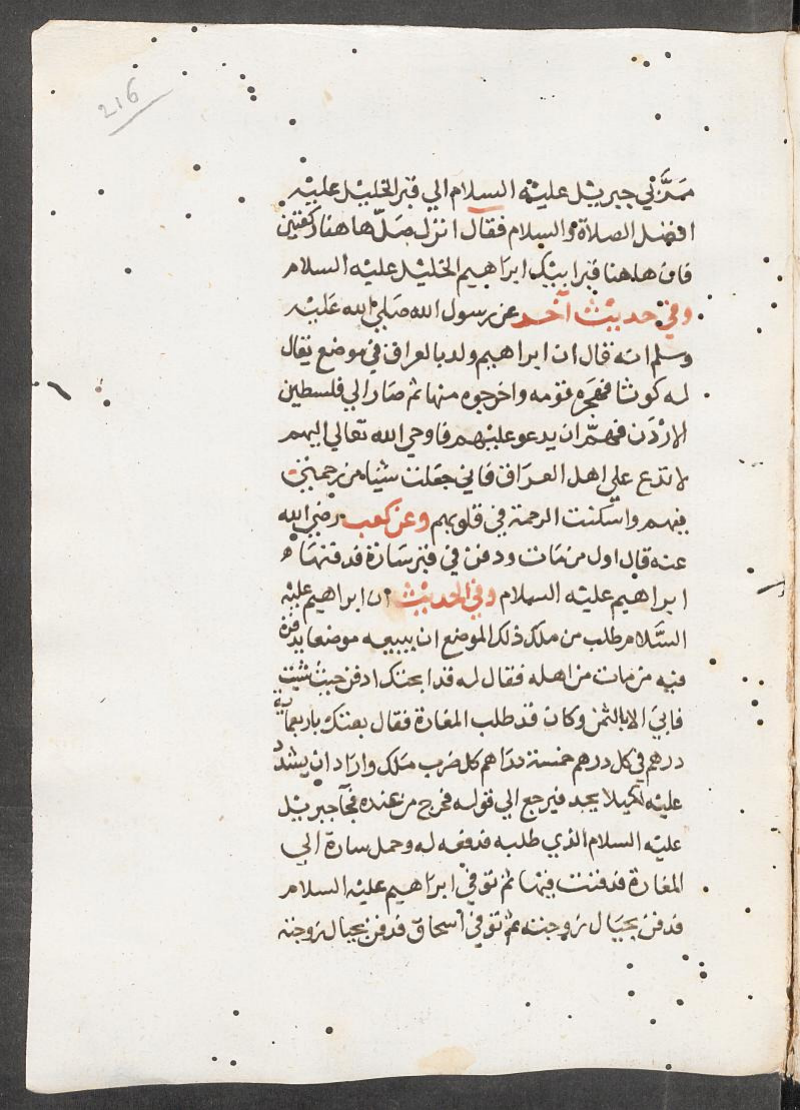 216
مَرَّ بي جبريل عليه السلام الي قبر الخليل عليه
افضل الصلاة والسلام فقال انزل صَلّ هاهنا ركعتين
فان هاهنا قبر ابيك ابراهيم الخليل عليه السلام
وفي حديث آخر عن رسول الله صَلي الله عَليه
وسلم انه قال ان ابراهيم ولد بالعراق في موضع يقال
له كوثا فهجره قومه واخرجوه منها ثم صَار الي فلسطين
الارْدَن فهمّ ان يدعو عليهم فاوحي الله تعالي اليهم
لا تدع علي اهل العراق فاني جعلت شيئا من رحمتي
فيهم واسكنت الرحمة في قلوبهم وعن كعب رضي الله
عنه قال اول من مات ودفن في قبر سَارَة قد فنهَا
ابراهيم عليه السلام وفي الحديث ان ابراهيم عليه
السَّلام طلب من ملك ذلك الموضع ان يبيعه موضعا يدفن
فيه من مات من اهله فقال له قد ابحتك ادفن حيث شيت
فابيَ الا بالثمن وكان قد طلب المغارة فقال بعتك باربعماية
درهم في كل درهم خمسة دراهم كل ضرب مَلك وارَاد ان يشدد
عليه لكيلا يجد فيرجع الي قوله فخرج من عنده فجآ جبريل
عليه السلام الذي طلبه فدفعه له وحمل سارة الي
المغارة فدفنت فيها ثم توفيَ ابرَاهيم عليه السلام
فدفن بحيَال زوجته ثم توفيَ اسحاق فدفن بحيال زوجته